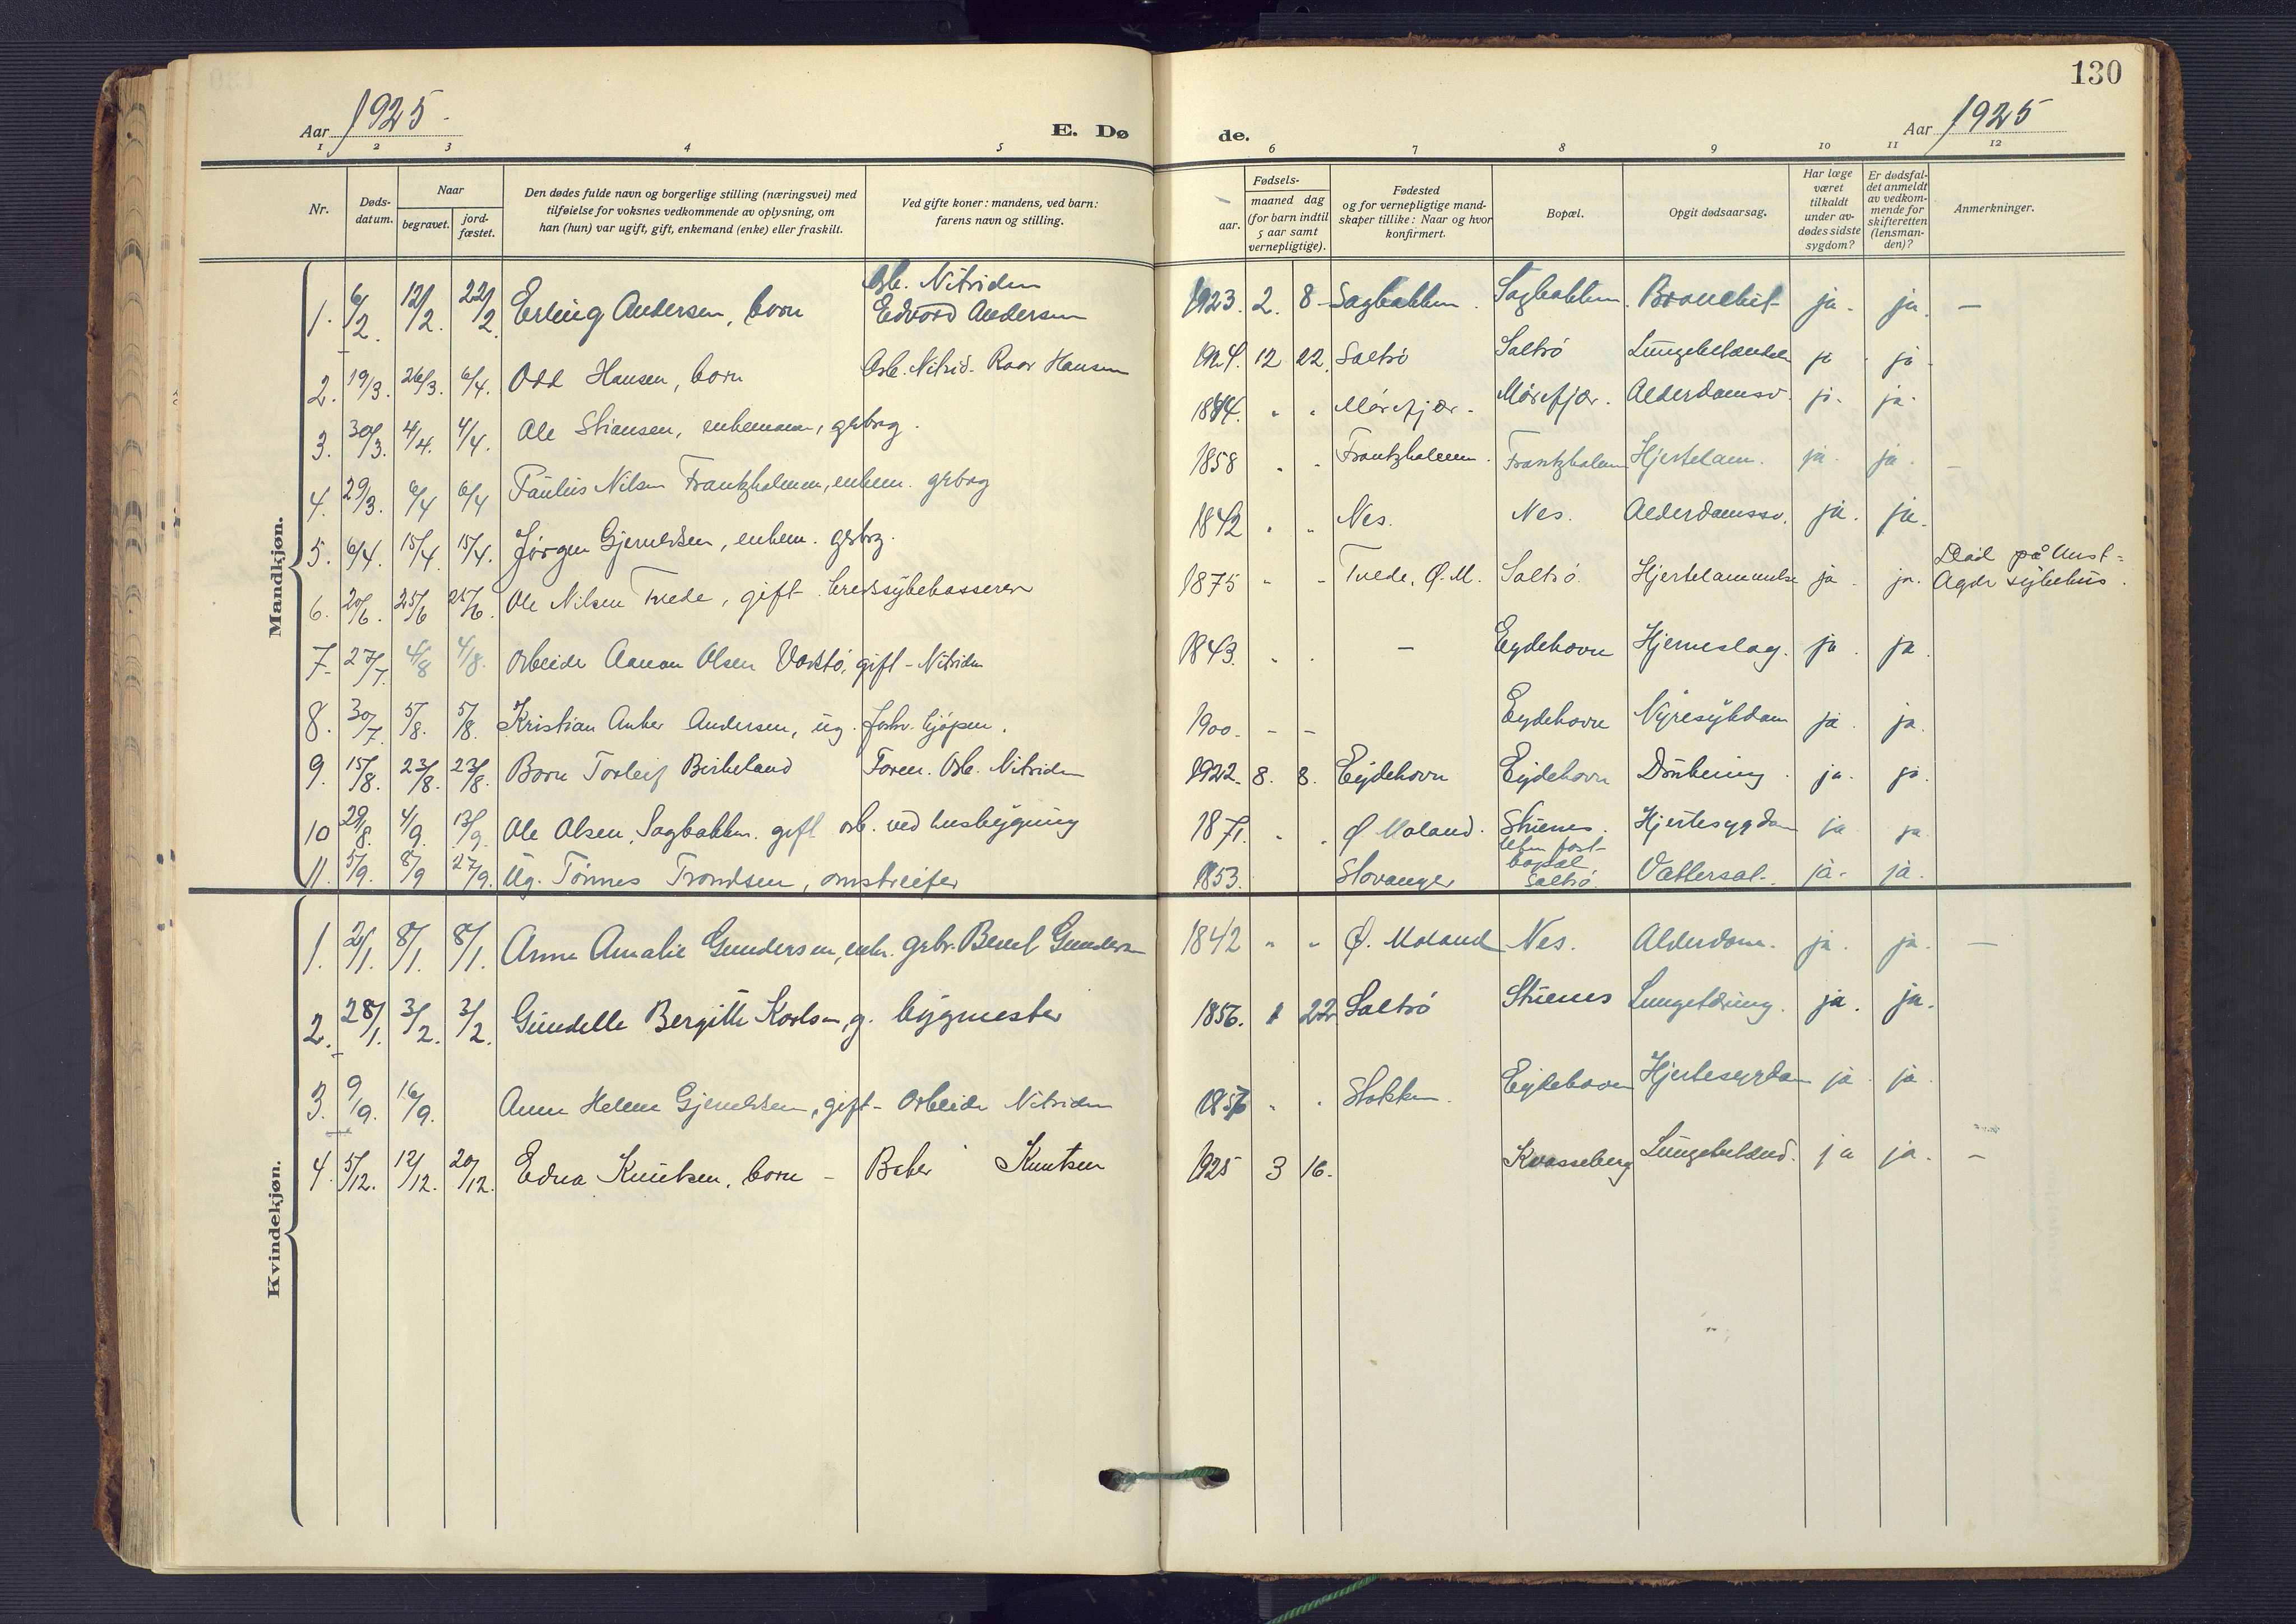 130
Aar 1925.
E. Dø
de.
Aar 1925
1 2 3 4 5 6 7 8 9 10 11 12
Nr.
Døds-
datum.
Naar
begravet.
jord-
fæstet.
Den dødes fulde navn og borgerlige stilling (næringsvei) med
tilføielse for voksnes vedkommende av oplysning, om
han (hun) var ugift, gift, enkemand (enke) eller fraskilt.
Ved gifte koner: mandens, ved barn:
farens navn og stilling.
Fødsels-
aar.
maaned dag
(for barn indtil
5 aar samt
vernepligtige).
Fødested
og for vernepligtige mand-
skaper tillike: Naar og hvor
konfirmert.
Bopæl.
Opgit dødsaarsag.
Har læge
været
tilkaldt
under av-
dødes sidste
sygdom?
Er dødsfal-
det anmeldt
av vedkom-
mende for
skifteretten
(lensman-
den)?
Anmerkninger.
Mandkjøn.
Arb. Nitriden
1. 6/2 12/2. 22/2. Erling Andersen, barn Edvard Andersen 1923. 2. 8 Sagbakken. Sagbakken. Bronchit ja. ja. —
2. 19/3. 26/3. 6/4. Odd Hansen, barn Arb. Nitrid. Roar Hansen 1924. 12 22. Saltrö Saltrö ja. ja.
3. 30/3. 4/4. 4/4. Ole Stiansen, enkemann, grbrg. Mörefjær. Mörefjær. Alderdomssv. ja. ja.
4. 29/3. 6/4 6/4 Paulus Nilsen Frantzholmen, enkem. grbrg 1858 Frantzholmen. Frantzholmen Hjertelam. ja. ja. —
5. 6/4. 15/4. 15/4. Jörgen Gjeruldsen, enkem. grbrg. 1842 Nes. Nes. Alderdomssv. ja. ja.
6. 20/6. 25/6 25/6. Ole Nilsen Tvede, gift kredssykekasserer 1875 Tvede, Ø.M. Saltrö. Hjertelammelse ja. ja. Död på Aust-
Agder sykehus.
7. 27/7. 4/8 4/8. Arbeider Aanon Olsen Vaktö, gift - Nitriden 1843. — Eydehavn Hjerneslag. ja. ja
8. 30/7. 5/8. 5/8. Kristian Anker Andersen, ug. 1900. Eydehavn Nyresykdom ja. ja.
9. 15/8. 23/8. 23/8. Barn Torleif Birkeland Foren. Arb. Nitriden 1922. 8. 8. Eydehavn Eydehavn Drukning. ja. ja.
10 29/8. 4/9. 13/9. Ole Olsen, Sagbakken. gift arb. ved husbygning 1871. Ø. Moland. Stuenes. Hjertesygdom ja ja
11. 5/9. 8/9 27/9. Ug. Tönnes Trondsen, omstreifer 1853. Stavanger Uten fast
bopæl
Saltrö. Vattersot. ja. ja.
Kvindekjøn.
1. 2/1. 8/1. 8/1. Anna Amalie Gundersen, enke. grbr. Bernt Gundersen 1842 Ø. Moland Nes. Alderdom. ja. ja. —
2. 28/1. 3/2. 3/2. Gundelle Bergitte Karlsen, g. bygmester 1856. 22 Saltrö Stuenes Lungetæring. ja. ja.
3. 9/9. 16/9. Anne Helene Gjeruldsen, gift - Arbeider Nitriden Stokken. Eydehavn Hjertesygdom ja ja
4. 5/12. 12/12. 20/12. Edna Knutsen, barn - Baker Knutsen 1925 3 16. Kvasseberg Lungebetænd. ja ja. —